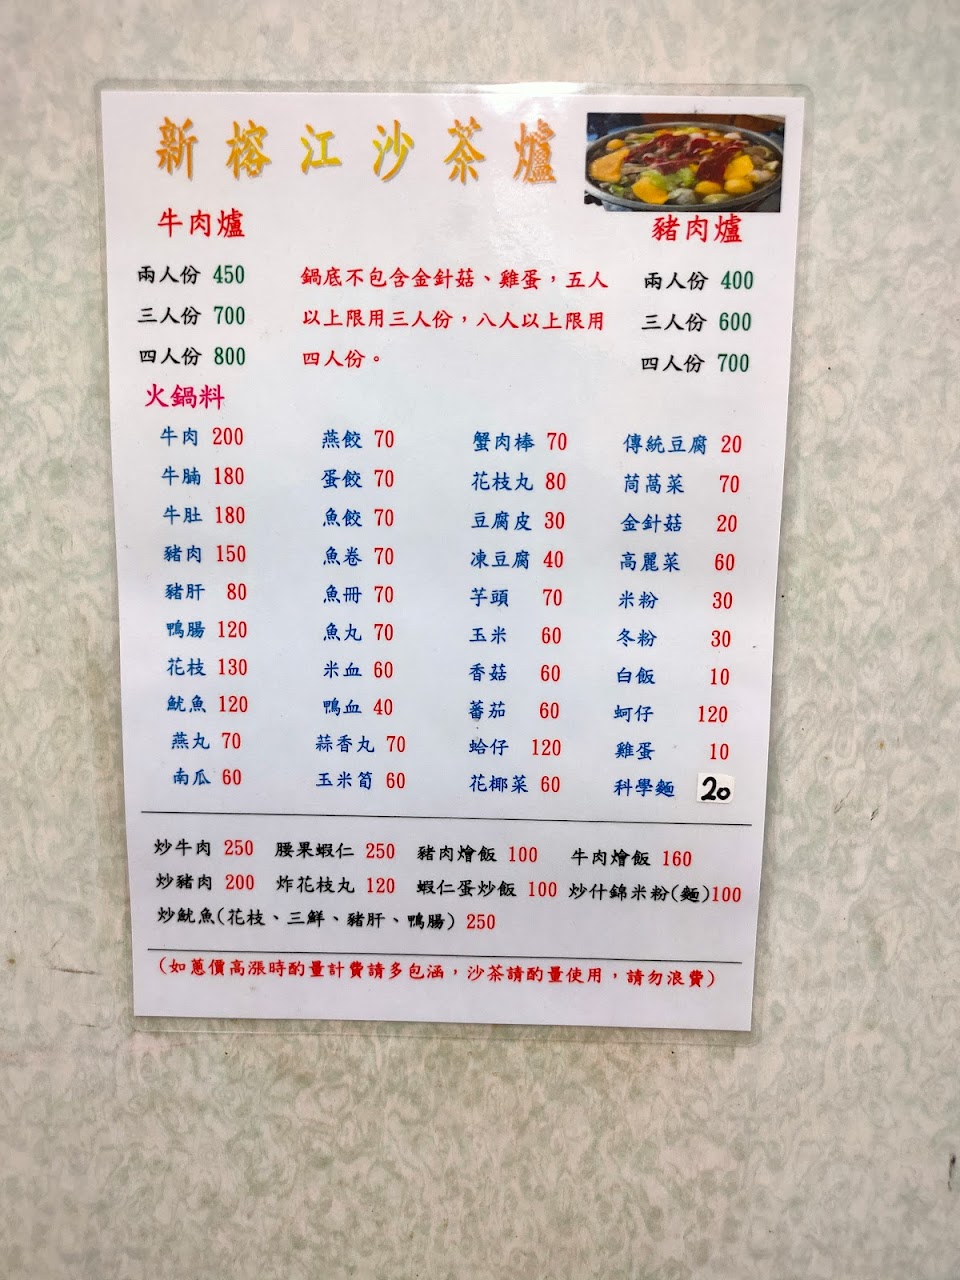 新榕江沙茶爐
牛肉爐
豬肉爐
兩人份 450
三人份 700
四人份 800
鍋底不包含金針菇、雞蛋，五人
以上限用三人份，八人以上限用
四人份。
兩人份 400
三人份 600
四人份 700
火鍋料
牛肉 200 燕餃 70 蟹肉棒 70 傳統豆腐 20
牛腩 180 蛋餃 70 花枝丸 80 茼萵菜 70
牛肚 180 魚餃 70 豆腐皮 30 金針菇 20
豬肉 150 魚卷 70 凍豆腐 40 高麗菜 60
豬肝 80 魚冊 70 芋頭 70 米粉 30
鴨腸 120 魚丸 70 玉米 60 冬粉 30
花枝 130 米血 60 香菇 60 白飯 10
魷魚 120 鴨血 40 蕃茄 60 蚵仔 120
燕丸 70 蒜香丸 70 蛤仔 120 雞蛋 10
南瓜 60 玉米筍 60 花椰菜 60 科學麵 20
炒牛肉 250 腰果蝦仁 250 豬肉燴飯 100 牛肉燴飯 160
炒豬肉 200 炸花枝丸 120 蝦仁蛋炒飯 100 炒什錦米粉(麵)100
炒魷魚(花枝、三鮮、豬肝、鴨腸) 250
(如蔥價高漲時酌量計費請多包涵，沙茶請酌量使用，請勿浪費)